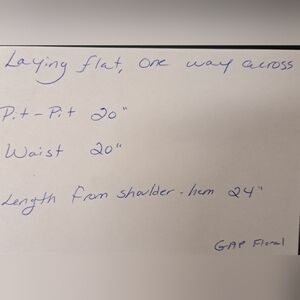 Laying flat, one way across
Pit-Pit 20"
Waist 20"
Length from shoulder-hem 24"
GAP Floral